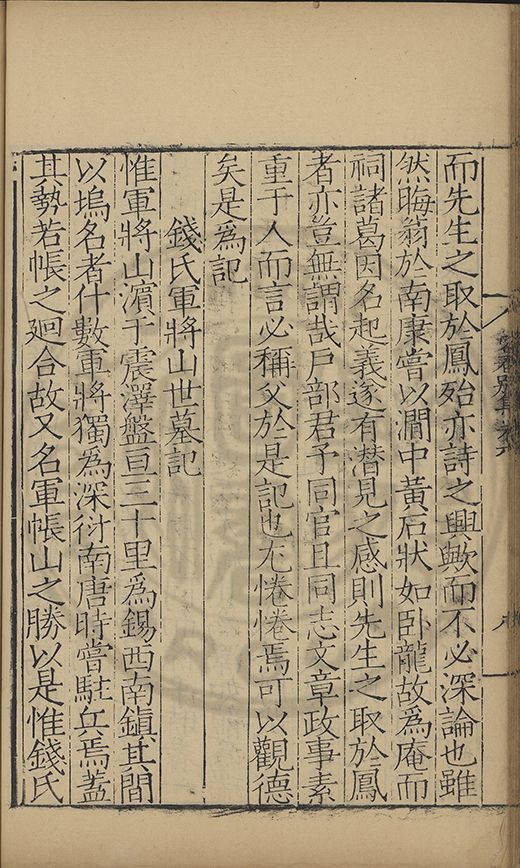 而先生之取於鳳殆亦詩之興歟而不必深論也雖
然晦翁於南康嘗以澗中黃石狀如卧龍故爲庵而
祠諸葛因名起義遂有潜見之感則先生之取於鳳
者亦豈無謂哉戶部君予同官且同志文章政事素
重于人而言必稱父於是記也尤惓惓焉可以觀德
矣是爲記
錢氏軍將山世墓記
惟軍將山濵于震澤盤亘三十里爲錫西南鎮其間
以塢名者什數軍將獨為深衍南唐時嘗駐兵焉蓋
其勢若帳之廻合故又名軍帳山之勝以是惟錢氏